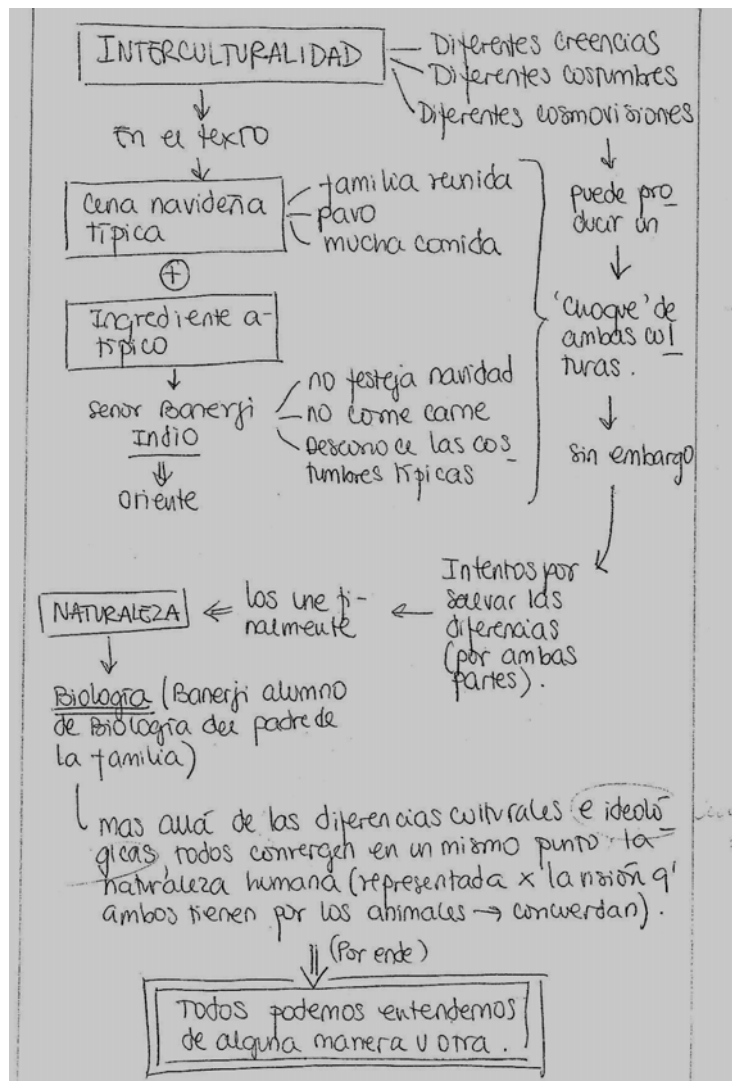 INTERCULTURALIDAD
Diferentes creencias
Diferentes costumbres
Diferentes cosmovisiones
En el texto
Cena navideña
típica
familia reunida
pavo
mucha comida
+
Ingrediente a-
típico
señor Banerji
Indio
Oriente
no festeja navidad
no come carne
Desconoce las cos_
tumbres típicas
puede pro_
ducir un
'Choque' de
ambas cul_
turas.
sin embargo
Intentos por
salvar las
diferencias
(por ambas
partes).
los une fi-
nalmente
NATURALEZA
Biología (Banerji alumno
de Biología del padre de
la familia)
mas allá de las diferencias culturales e ideoló_
gicas todos convergen en un mismo punto la
naturaleza humana (representada x la visión q'
ambos tienen por los animales → concuerdan).
(Por ende)
Todos podemos entendernos
de alguna manera u otra.